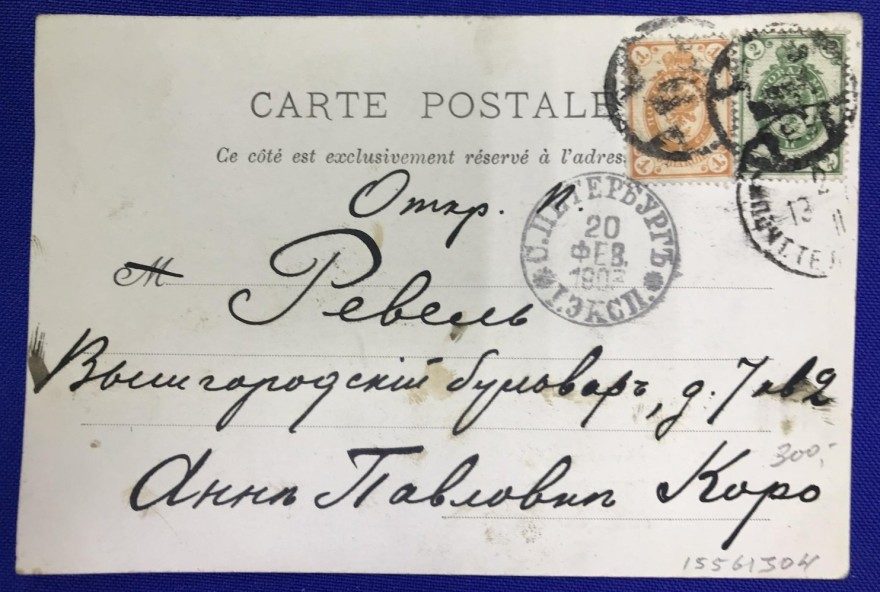 CARTE POSTALE
Ce côté est exclusivement réservé à l'adres
Откр. п.
С. ПЕТЕРБУРГЪ
20
ФЕВ.
I. ЭКСП.
М
Ревель
Вышгородскій бульваръ, д. 7 кв 2
300,-
Аннѣ Павловнѣ Коро
15561304
1
1
1
1
2
2
13